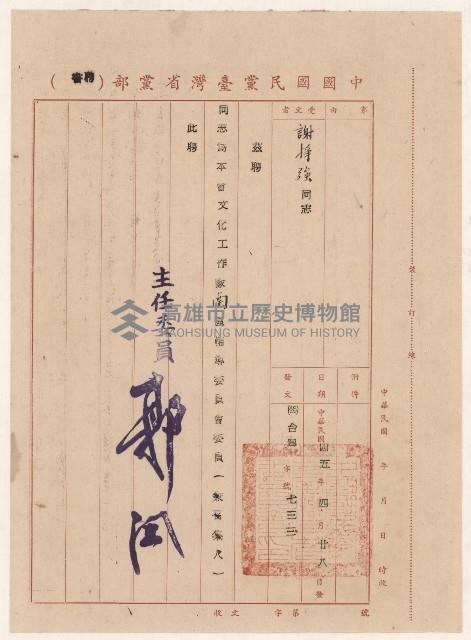 中國國民黨臺灣省黨部（聘書）
受文者
謝掙強同志
附件
日期 中華民國四五年四月廿八日發
發文 字號 七三二
茲聘
同志為本會文化工作隊南區輔導委員會委員（兼召集人）
此聘
主任委員
裝訂線
中華民國 年 月 日 時收
收文 字第 號
高雄市立歷史博物館
KAOHSIUNG MUSEUM OF HISTORY